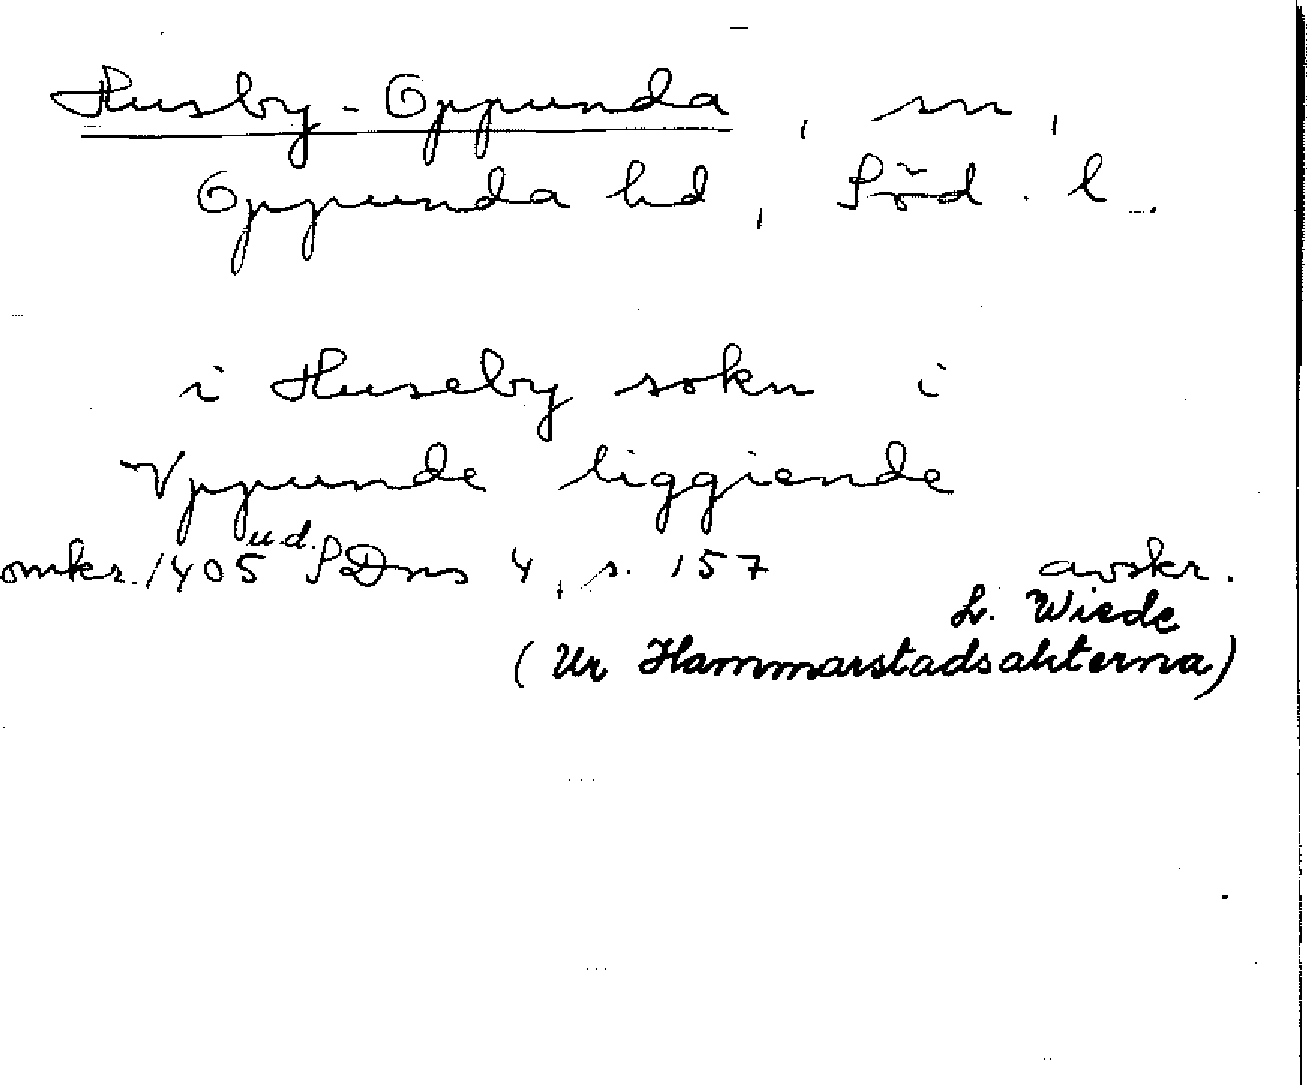 Husby-Oppunda, sn,
Oppunda hd, Söd. l.
i Huseby sokn i
Vppunde liggiende
omkr. 1405 u.d. SDns 4, s. 157 avskr.
L. Wiede
(Ur Hammarstadsakterna)